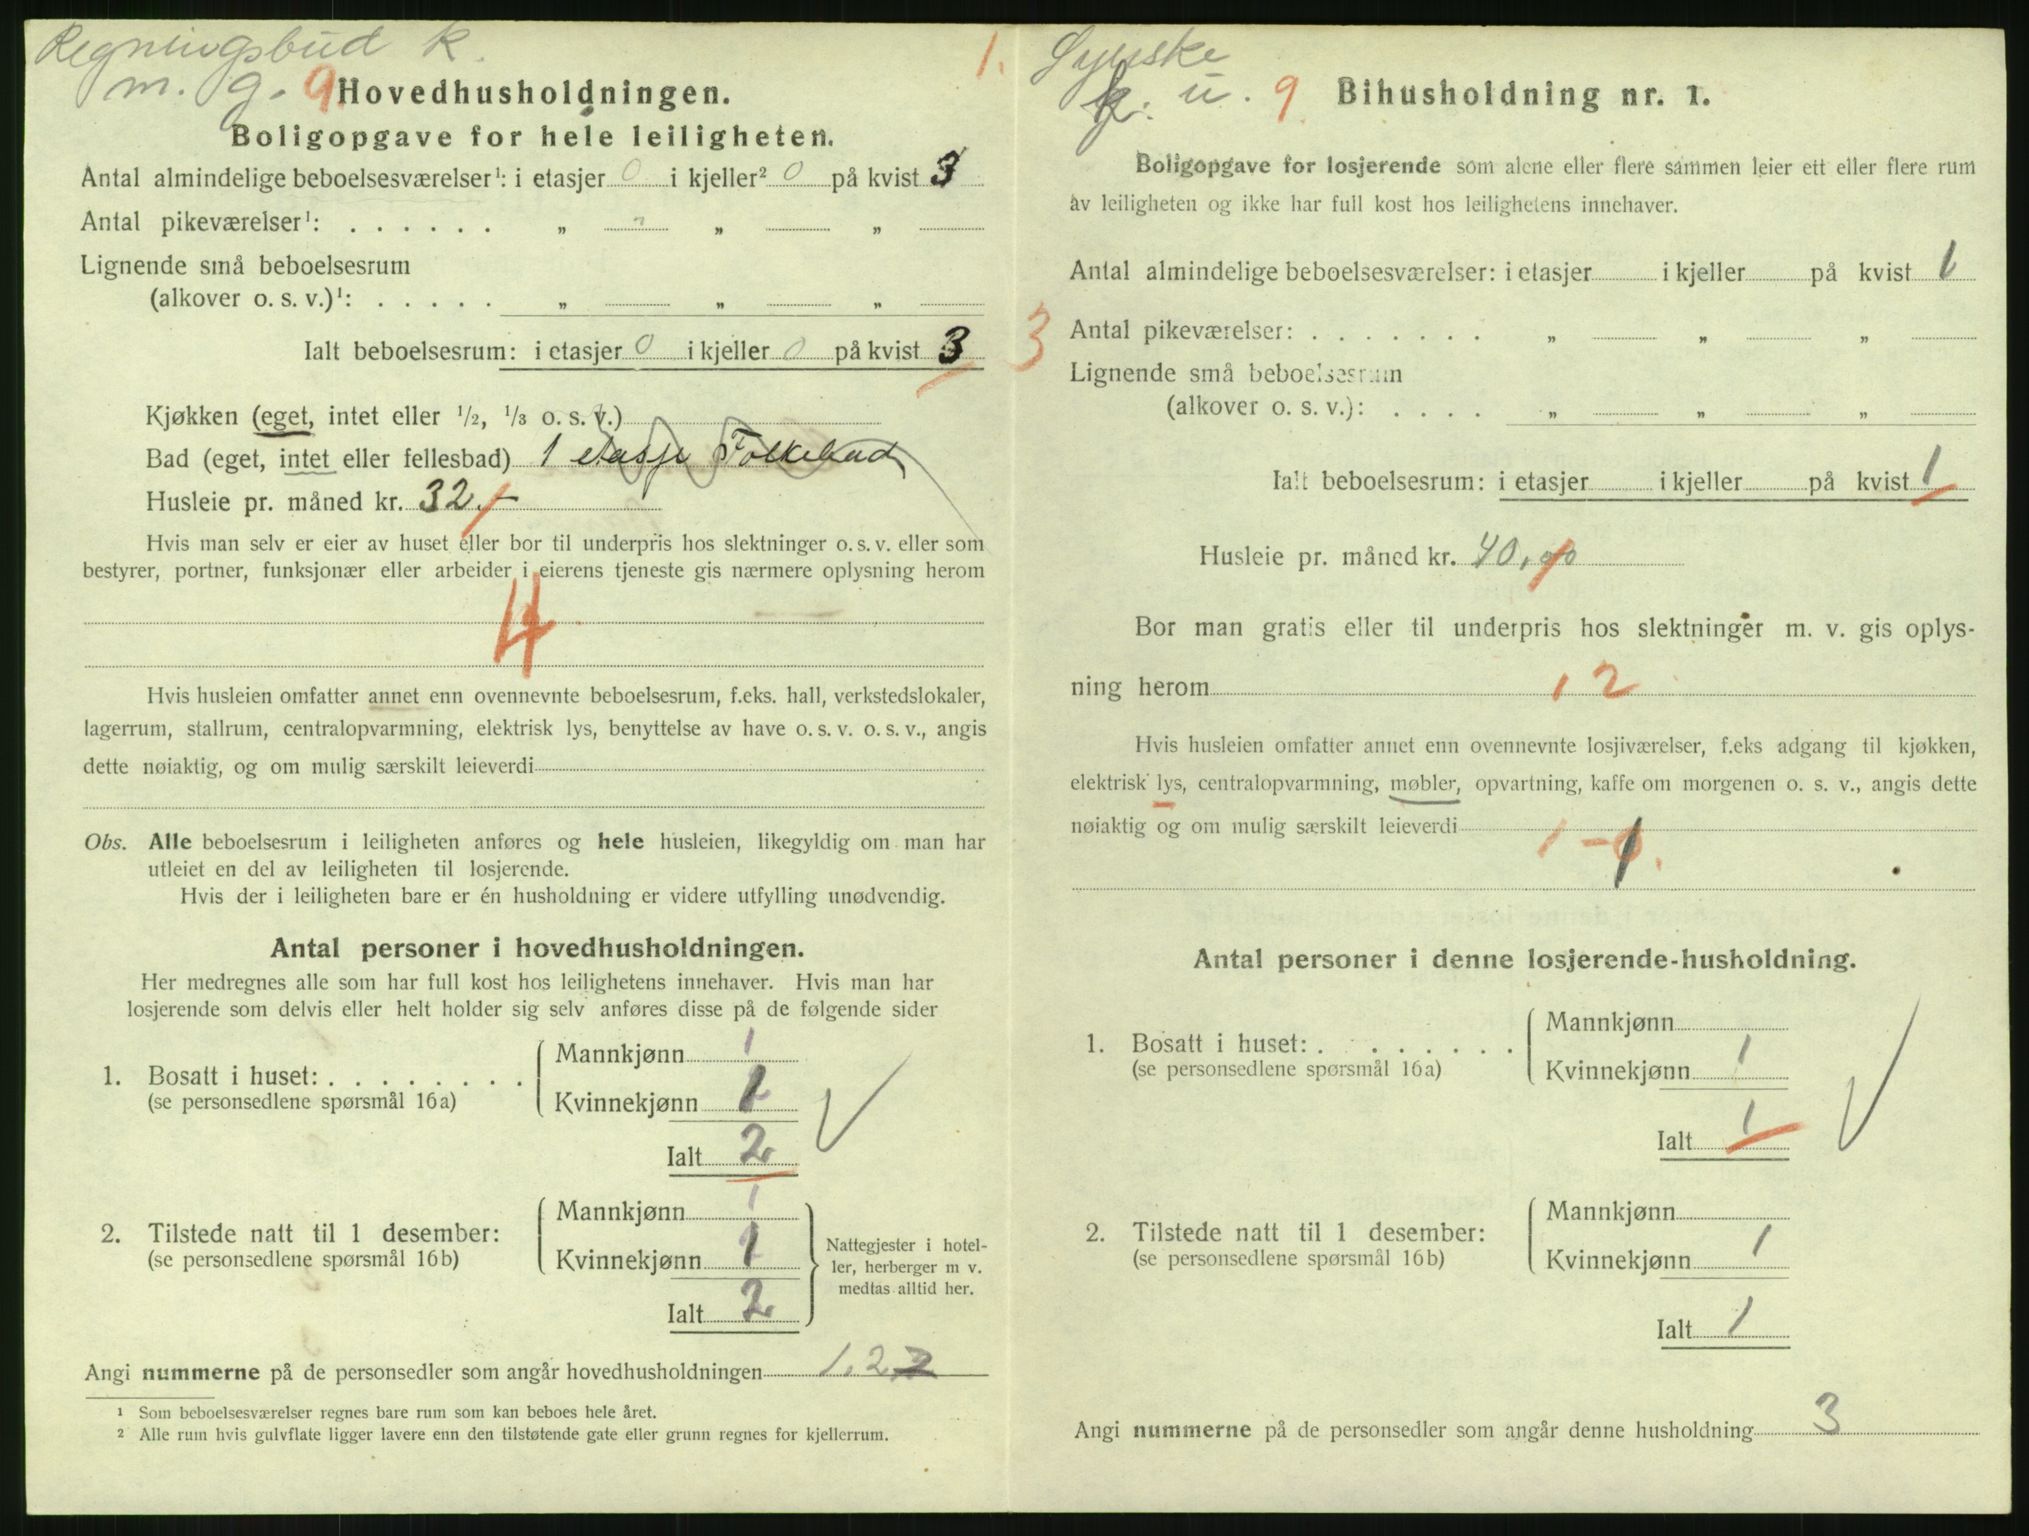 Regningsbud k.
m. g. 9 Hovedhusholdningen.
1.
Boligopgave for hele leiligheten.
Antal almindelige beboelsesværelser¹: i etasjer 0 i kjeller² 0 på kvist 3
Antal pikeværelser¹: . . . . . . „ „ „ „
Lignende små beboelsesrum
(alkover o. s. v.)¹: . . . . . „ „ „
Ialt beboelsesrum: i etasjer 0 i kjeller 0 på kvist 3
Kjøkken (eget, intet eller 1/2, 1/3 o. s. v.)
Bad (eget, intet eller fellesbad) 1 etasje Folkebad
Husleie pr. måned kr. 32.-
Hvis man selv er eier av huset eller bor til underpris hos slektninger o. s. v. eller som
bestyrer, portner, funksjonær eller arbeider i eierens tjeneste gis nærmere oplysning herom
4
Hvis husleien omfatter annet enn ovennevnte beboelsesrum, f.eks. hall, verkstedslokaler,
lagerrum, stallrum, centralopvarmning, elektrisk lys, benyttelse av have o. s. v. o. s. v., angis
dette nøiaktig, og om mulig særskilt leieverdi
Obs. Alle beboelsesrum i leiligheten anføres og hele husleien, likegyldig om man har
utleiet en del av leiligheten til losjerende.
Hvis der i leiligheten bare er én husholdning er videre utfylling unødvendig.
Antal personer i hovedhusholdningen.
Her medregnes alle som har full kost hos leilighetens innehaver. Hvis man har
losjerende som delvis eller helt holder sig selv anføres disse på de følgende sider
1. Bosatt i huset: . . . . . . . .
(se personsedlene spørsmål 16a)
Mannkjønn 1
Kvinnekjønn 1
Ialt 2
2. Tilstede natt til 1 desember:
(se personsedlene spørsmål 16b)
Mannkjønn 1
Kvinnekjønn 1
Ialt 2
Nattegjester i hotel-
ler, herberger m v.
medtas alltid her.
Angi nummerne på de personsedler som angår hovedhusholdningen 1, 2
¹ Som beboelsesværelser regnes bare rum som kan beboes hele året.
² Alle rum hvis gulvflate ligger lavere enn den tilstøtende gate eller grunn regnes for kjellerrum.
Syerske
u. 9 Bihusholdning nr. 1.
Boligopgave for losjerende som alene eller flere sammen leier ett eller flere rum
av leiligheten og ikke har full kost hos leilighetens innehaver.
Antal almindelige beboelsesværelser: i etasjer i kjeller på kvist 1
3
Antal pikeværelser: . . . . . . . „ „ „
Lignende små beboelsesrum
(alkover o. s. v.): . . . . „ „ „
Ialt beboelsesrum: i etasjer i kjeller på kvist 1
Husleie pr. måned kr. 40,00
Bor man gratis eller til underpris hos slektninger m. v. gis oplys-
ning herom 12
Hvis husleien omfatter annet enn ovennevnte losjiværelser, f.eks adgang til kjøkken,
elektrisk lys, centralopvarmning, møbler, opvartning, kaffe om morgenen o. s. v., angis dette
nøiaktig og om mulig særskilt leieverdi 1 -
1
Antal personer i denne losjerende-husholdning.
1. Bosatt i huset: . . . . . . . .
(se personsedlene spørsmål 16a)
Mannkjønn
Kvinnekjønn 1
Ialt 1
2. Tilstede natt til 1 desember:
(se personsedlene spørsmål 16b)
Mannkjønn
Kvinnekjønn 1
Ialt 1
Angi nummerne på de personsedler som angår denne husholdning 3